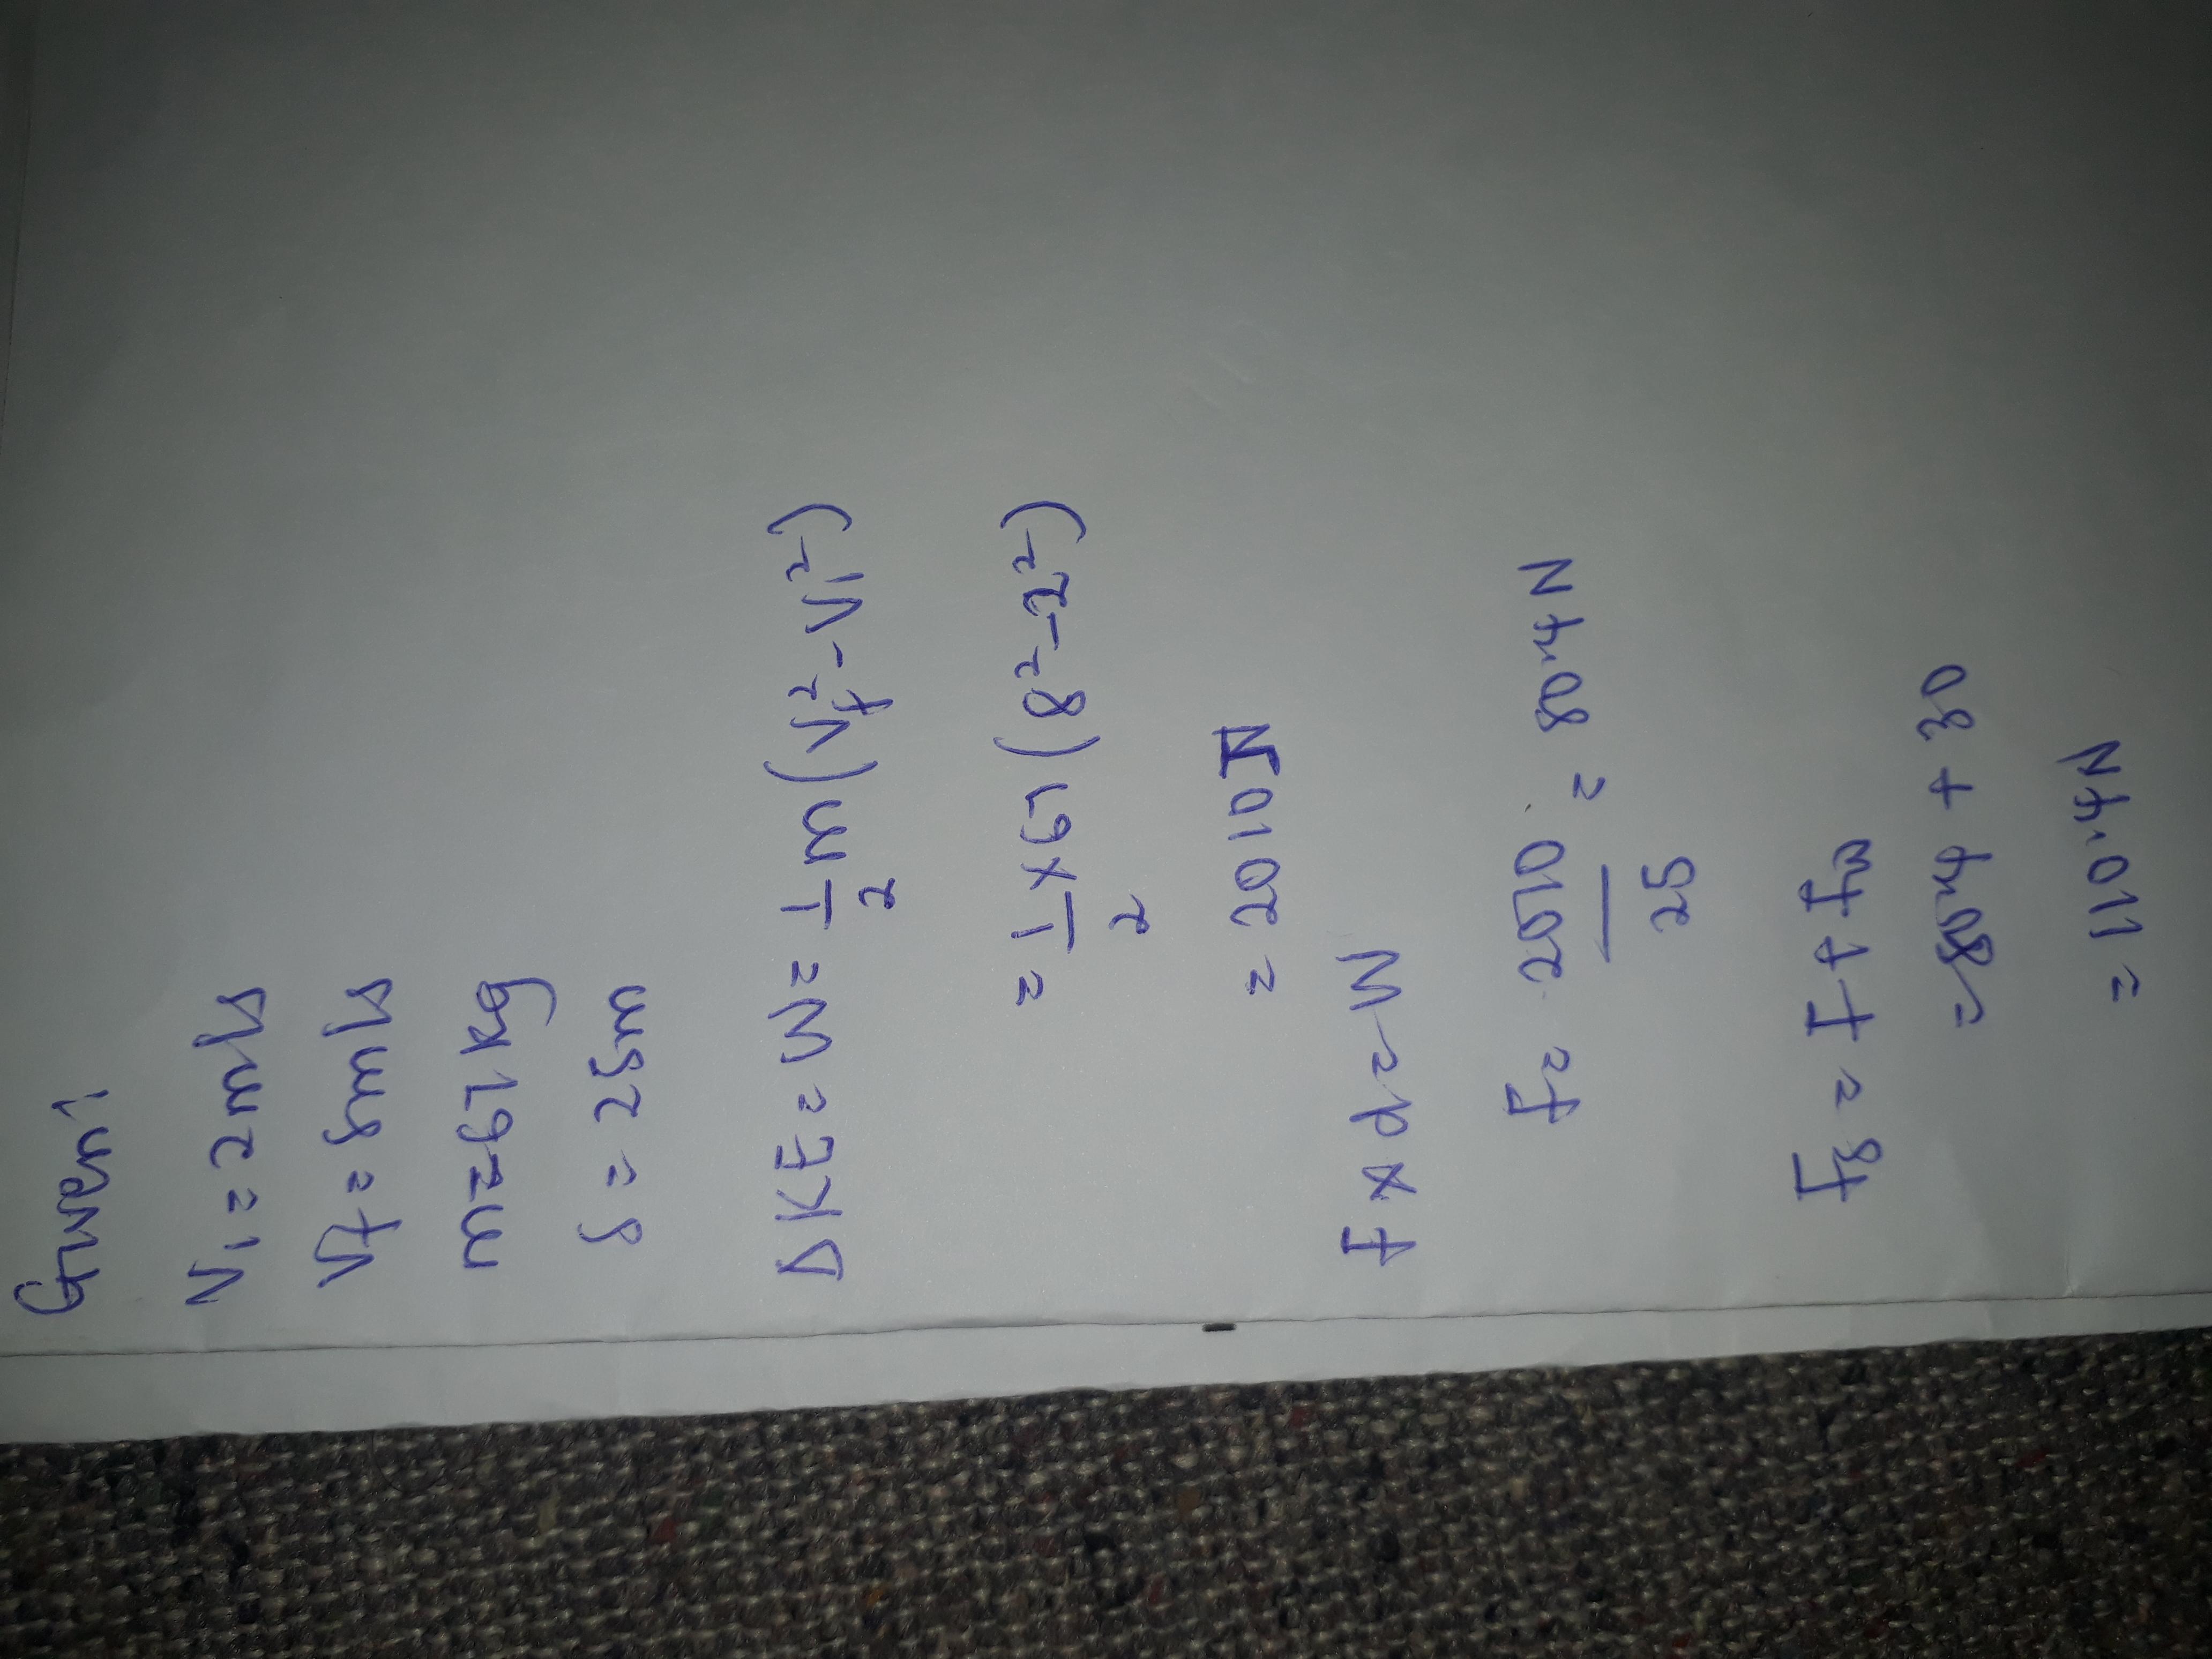 Given;
Vi = 2 m/s
Vf = 8 m/s
m = 67 kg
S = 25m
ΔKE = W = 1/2 m (Vf² - Vi²)
= 1/2 × 67 (8² - 2²)
= 2010 J
F × d = W
F = 2010/25 = 80.4 N
Fg = F + Fw
= 80.4 + 30
= 110.4 N